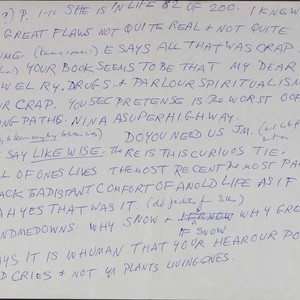 ?) P. 1-10 SHE IS IN LIFE 82 OF 200. I KNEW
GREAT FLAWS NOT QUITE REAL & NOT QUITE
UME. E SAYS ALL THAT WAS CRAP
YOUR BOOK SEEMS TO BE THAT MY DEAR
WELRY, DRUGS & PARLOUR SPIRITUALISM
UR CRAP. YOU SEE PRETENSE IS THE WORST OF
NG PATHS. NINA A SUPERHIGHWAY.
DO YOU NEED US JM.
SAY LIKE WISE. THERE IS THIS CURIOUS TIE.
L OF ONES LIVES THE MOST RECENT THE MOST PA
ACK TO A DISTANT COMFORT OF AN OLD LIFE AS IF
AH YES THAT WAS IT
NDMEDOWNS. WHY SNOW & WHY GRE
IF SNOW
AYS IT IS INHUMAN THAT YOUR HEAR OUR PO
D CRIES & NOT YR PLANTS LIVING ONES.